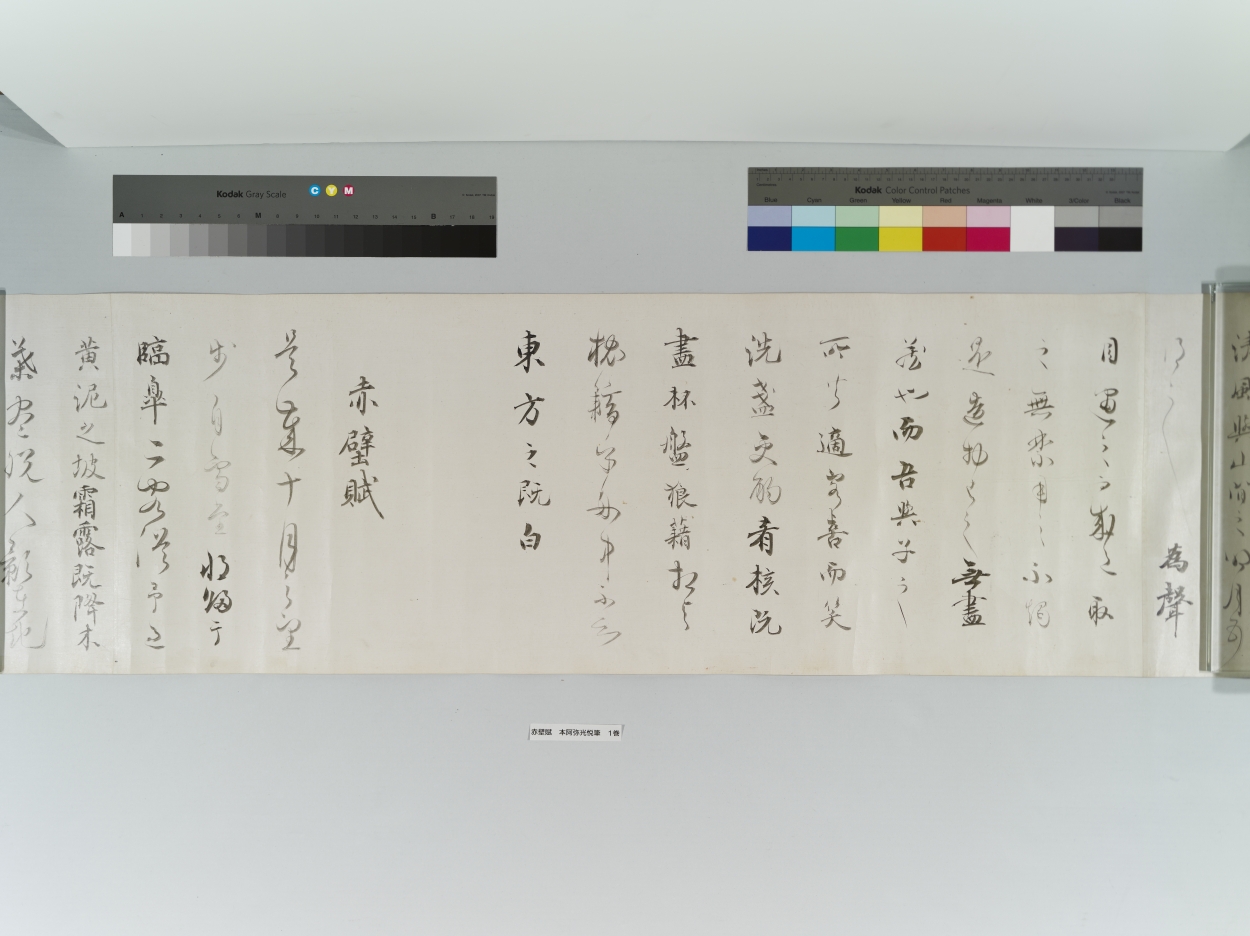 Kodak Gray Scale
C Y M
A 1 2 3 4 5 6 M 8 9 10 11 12 13 14 15 B 17 18 19
Kodak Color Control Patches
Blue Cyan Green Yellow Red Magenta White 3/Color Black
清風與山間之明月耳
得之 為聲
目遇之而成色取
之無禁用之不竭
是造物者之無盡
藏也而吾與子之
所共適客喜而笑
洗盞更酌肴核既
盡杯盤狼藉相與
枕藉乎舟中不知
東方之既白
赤壁賦
是歲十月之望
步自雪堂將歸于
臨皋二客從予過
黃泥之坂霜露既降木
葉盡脫人影在地
赤壁賦 本阿弥光悦筆 1巻